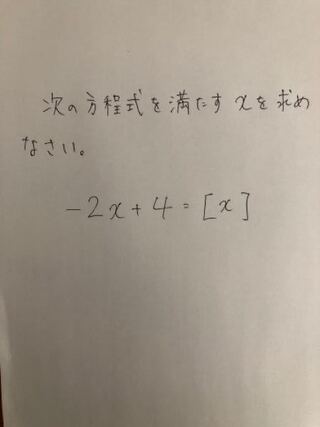 次の方程式を満たすxを求め
なさい。
-2x+4=[x]